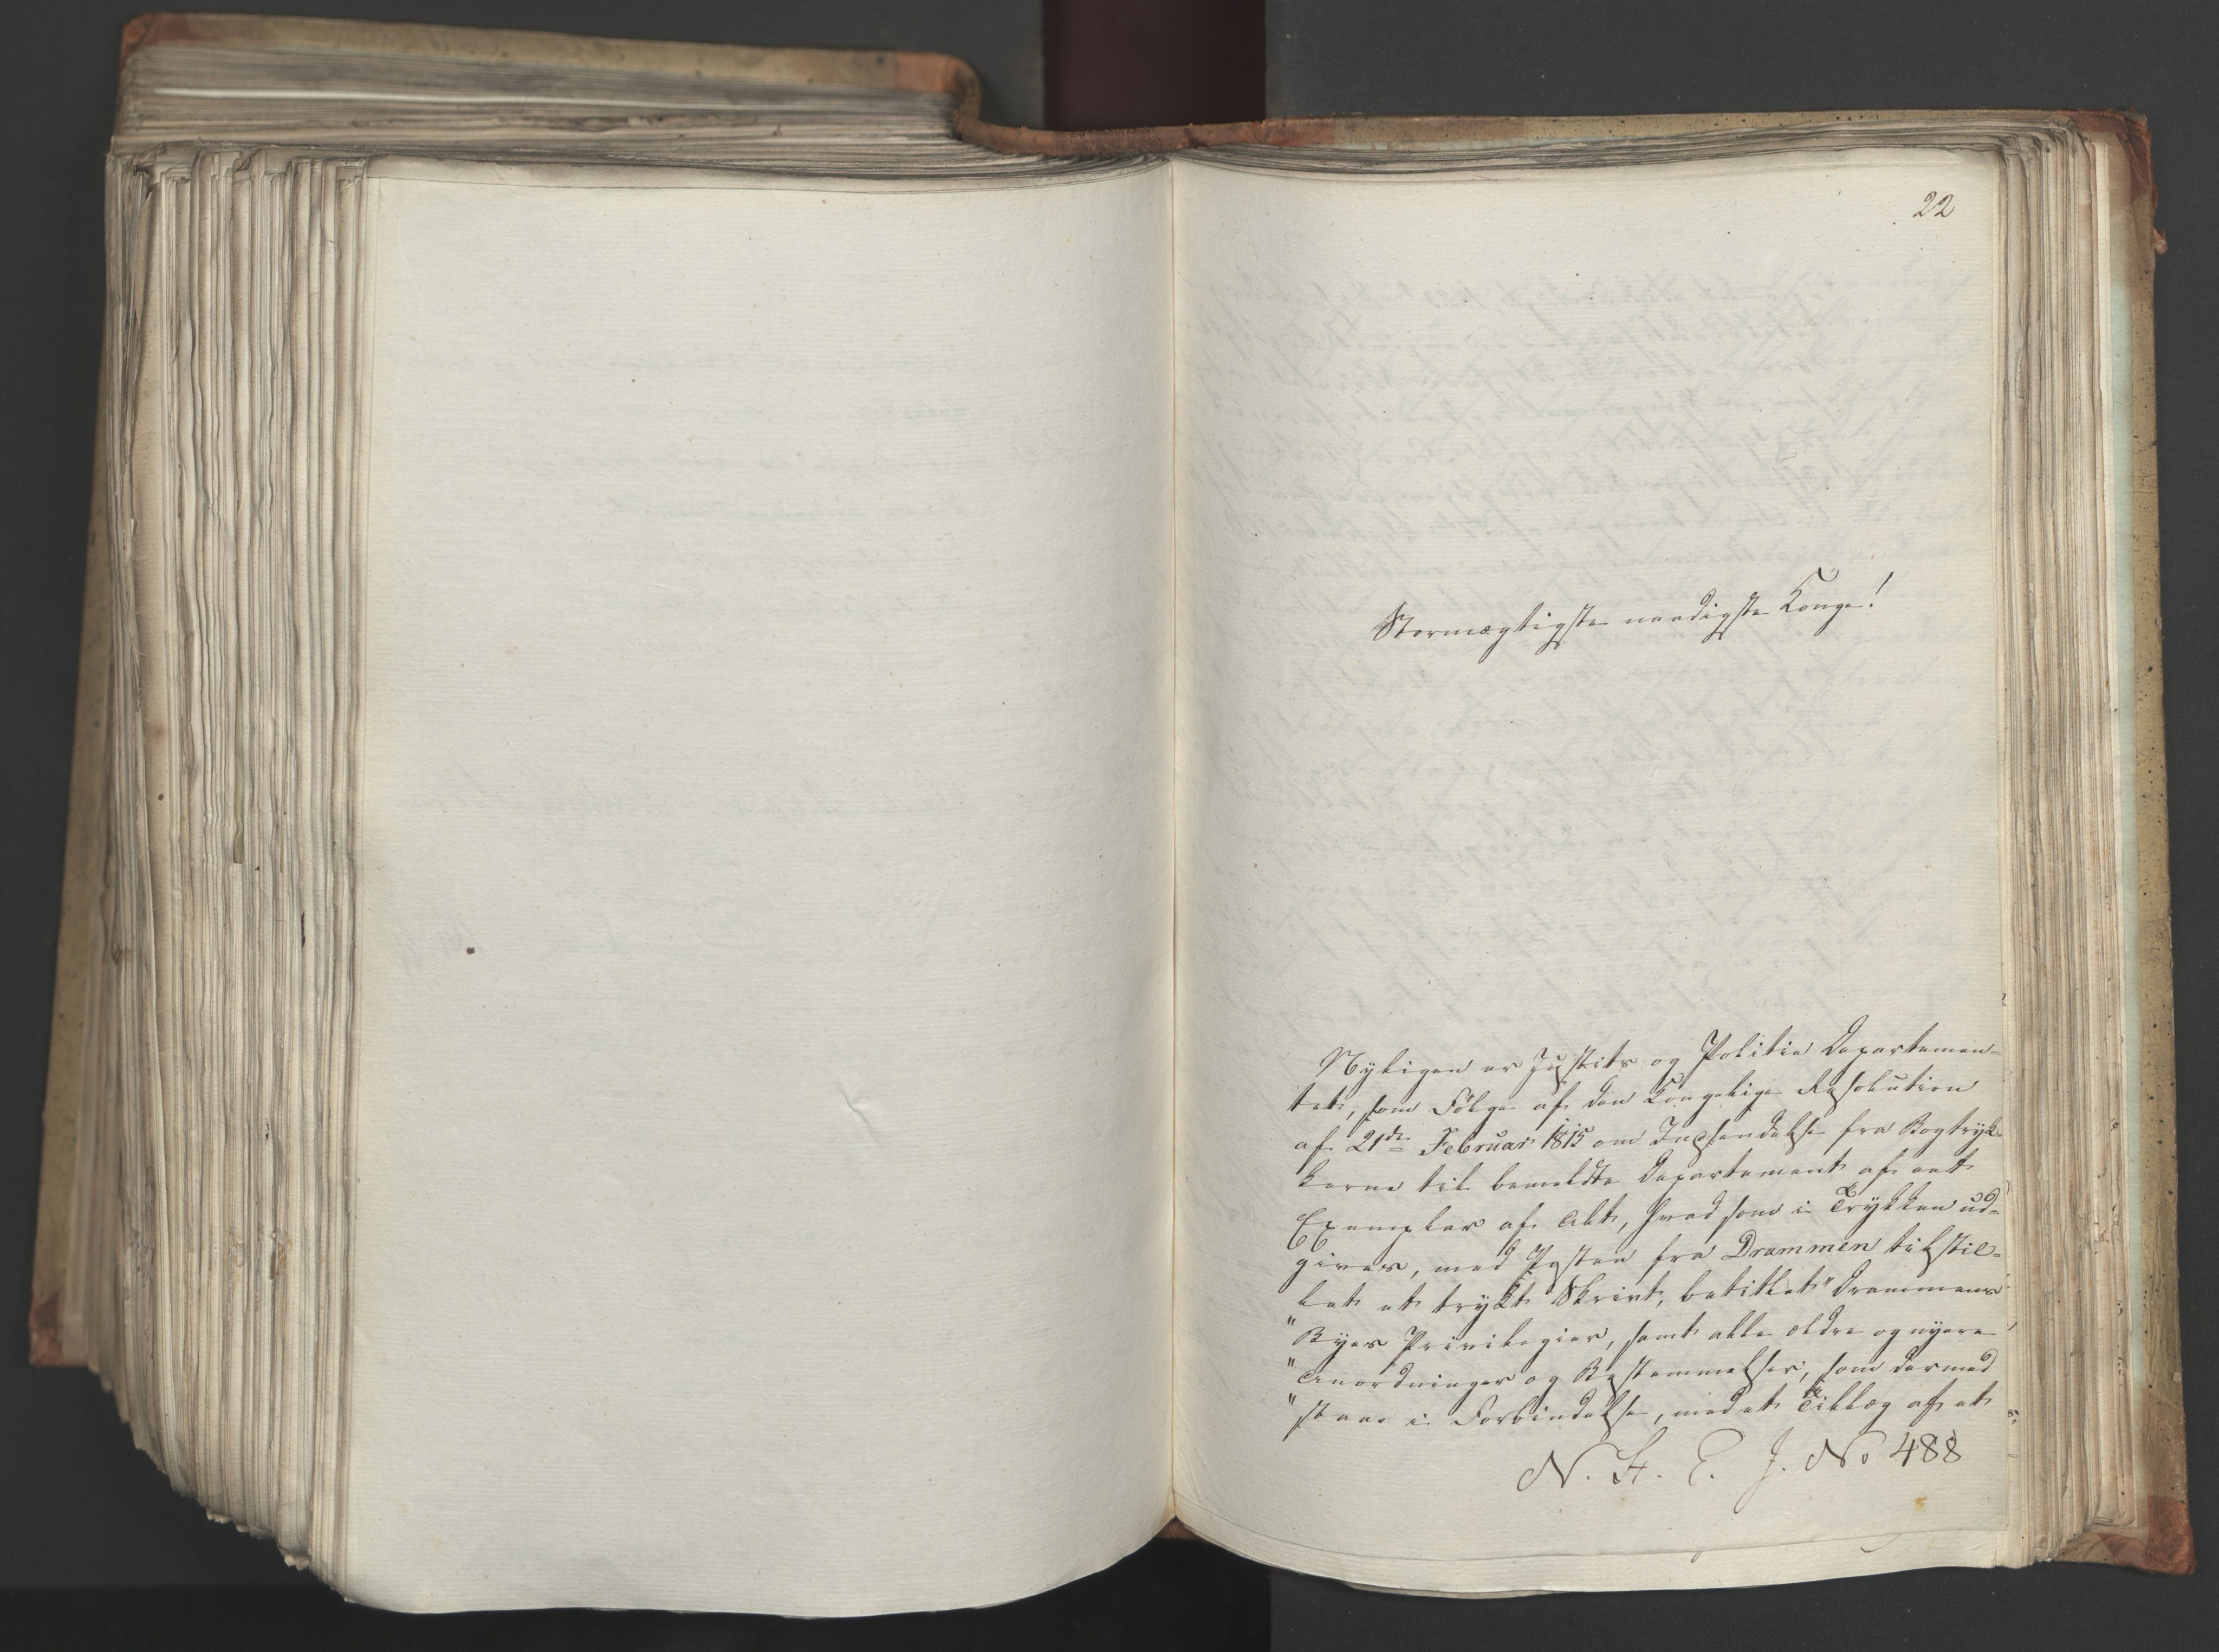 22
Stormægtigste naadigste Konge!
Nyligen er Justits og Politie Departemen-
tet, som Følge af den Kongelige Resolution
af 21de Februar 1815 om Indsendelse fra Bogtryk-
kerne til bemeldte Departement af eet
Exemplar af Alt, hvad som i Trykken ud-
gives, med Posten fra Drammen tilstil-
let et trykt Skrivt, betitlet "Drammens
"Byes Privilegier, samt alle ældre og nyere
"Anordninger og Bestemmelser, som dermed
"staae i Forbindelse, med et Tillæg af et
N. H. E. J. No 488